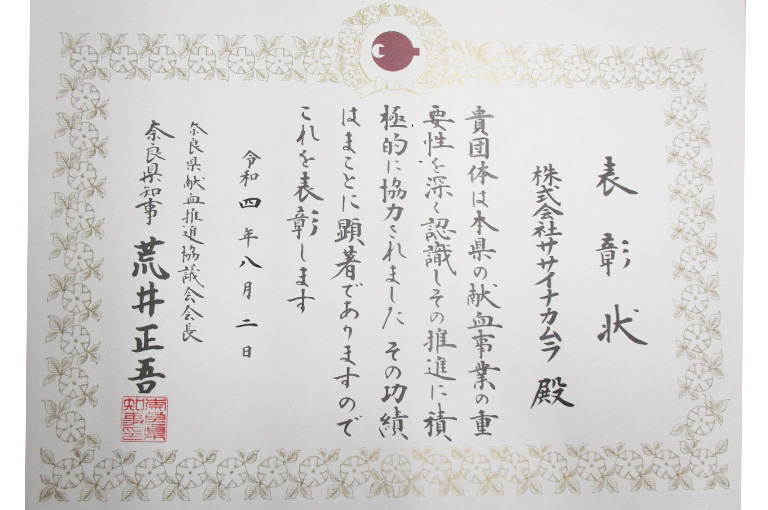 表彰状
株式会社ササイナカムラ 殿
貴団体は本県の献血事業の重
要性を深く認識しその推進に積
極的に協力されました その功績
はまことに顕著でありますので
これを表彰します
令和四年八月二日
奈良県献血推進協議会会長
奈良県知事 荒井正吾
奈良県知事之印